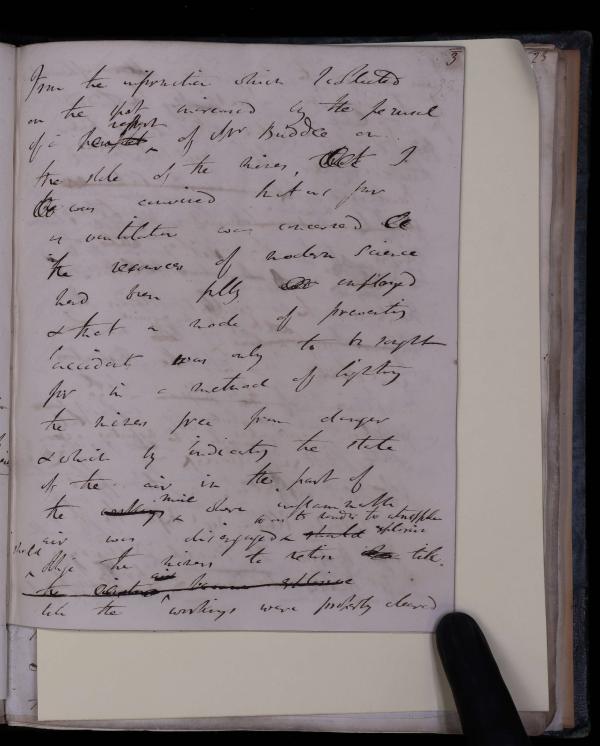 3
From the information which I collected
on the spot increased by the perusal
of a report of Mr Buddle on
the state of the mines, I
was convinced that as far
as ventilation was concerned
the resources of modern science
had been fully employed
& that a mode of preventing
accidents was only to be sought
for in a method of lighting
the mines free from danger
& which by indicating the state
of the air in the part of
the mine where inflammable
air was disengaged & so as to render the atmosphere explosive
should oblige the miners to retire till
the became explosive
till the workings were properly cleared